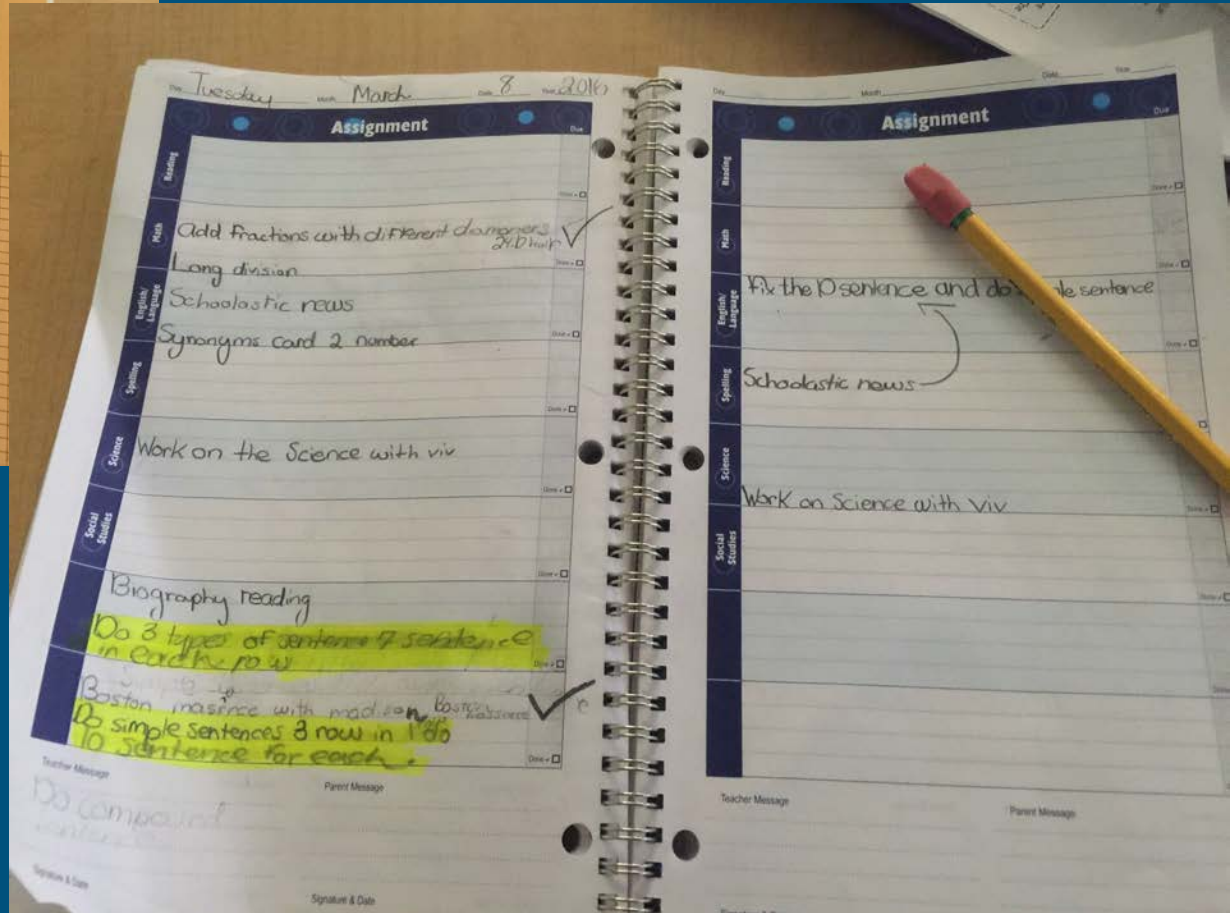 Day Tuesday Month March Date 8 Year 2016
Assignment
Due
Reading
Done
Math
Add fractions with different
Done
Long division
English/
Language
Schoolastic news
Done
Synonyms card 2 number
Spelling
Done
Science
Work on the Science with viv
Done
Social
Studies
Done
Biography reading
Do 3 types of sentence 7 sentence
in each row
Done
Boston masince with madison Boston
Do simple sentences 3 row in
10 sentence for each.
Done
Teacher Message
Parent Message
Do compound
Signature & Date
Signature & Date
Day Month Date Year
Assignment
Due
Reading
Done
Math
Done
English/
Language
Fix the 10 sentence and do sentence
Done
Spelling
Schoolastic news
Science
Work on Science with Viv
Done
Social
Studies
Done
Teacher Message
Parent Message